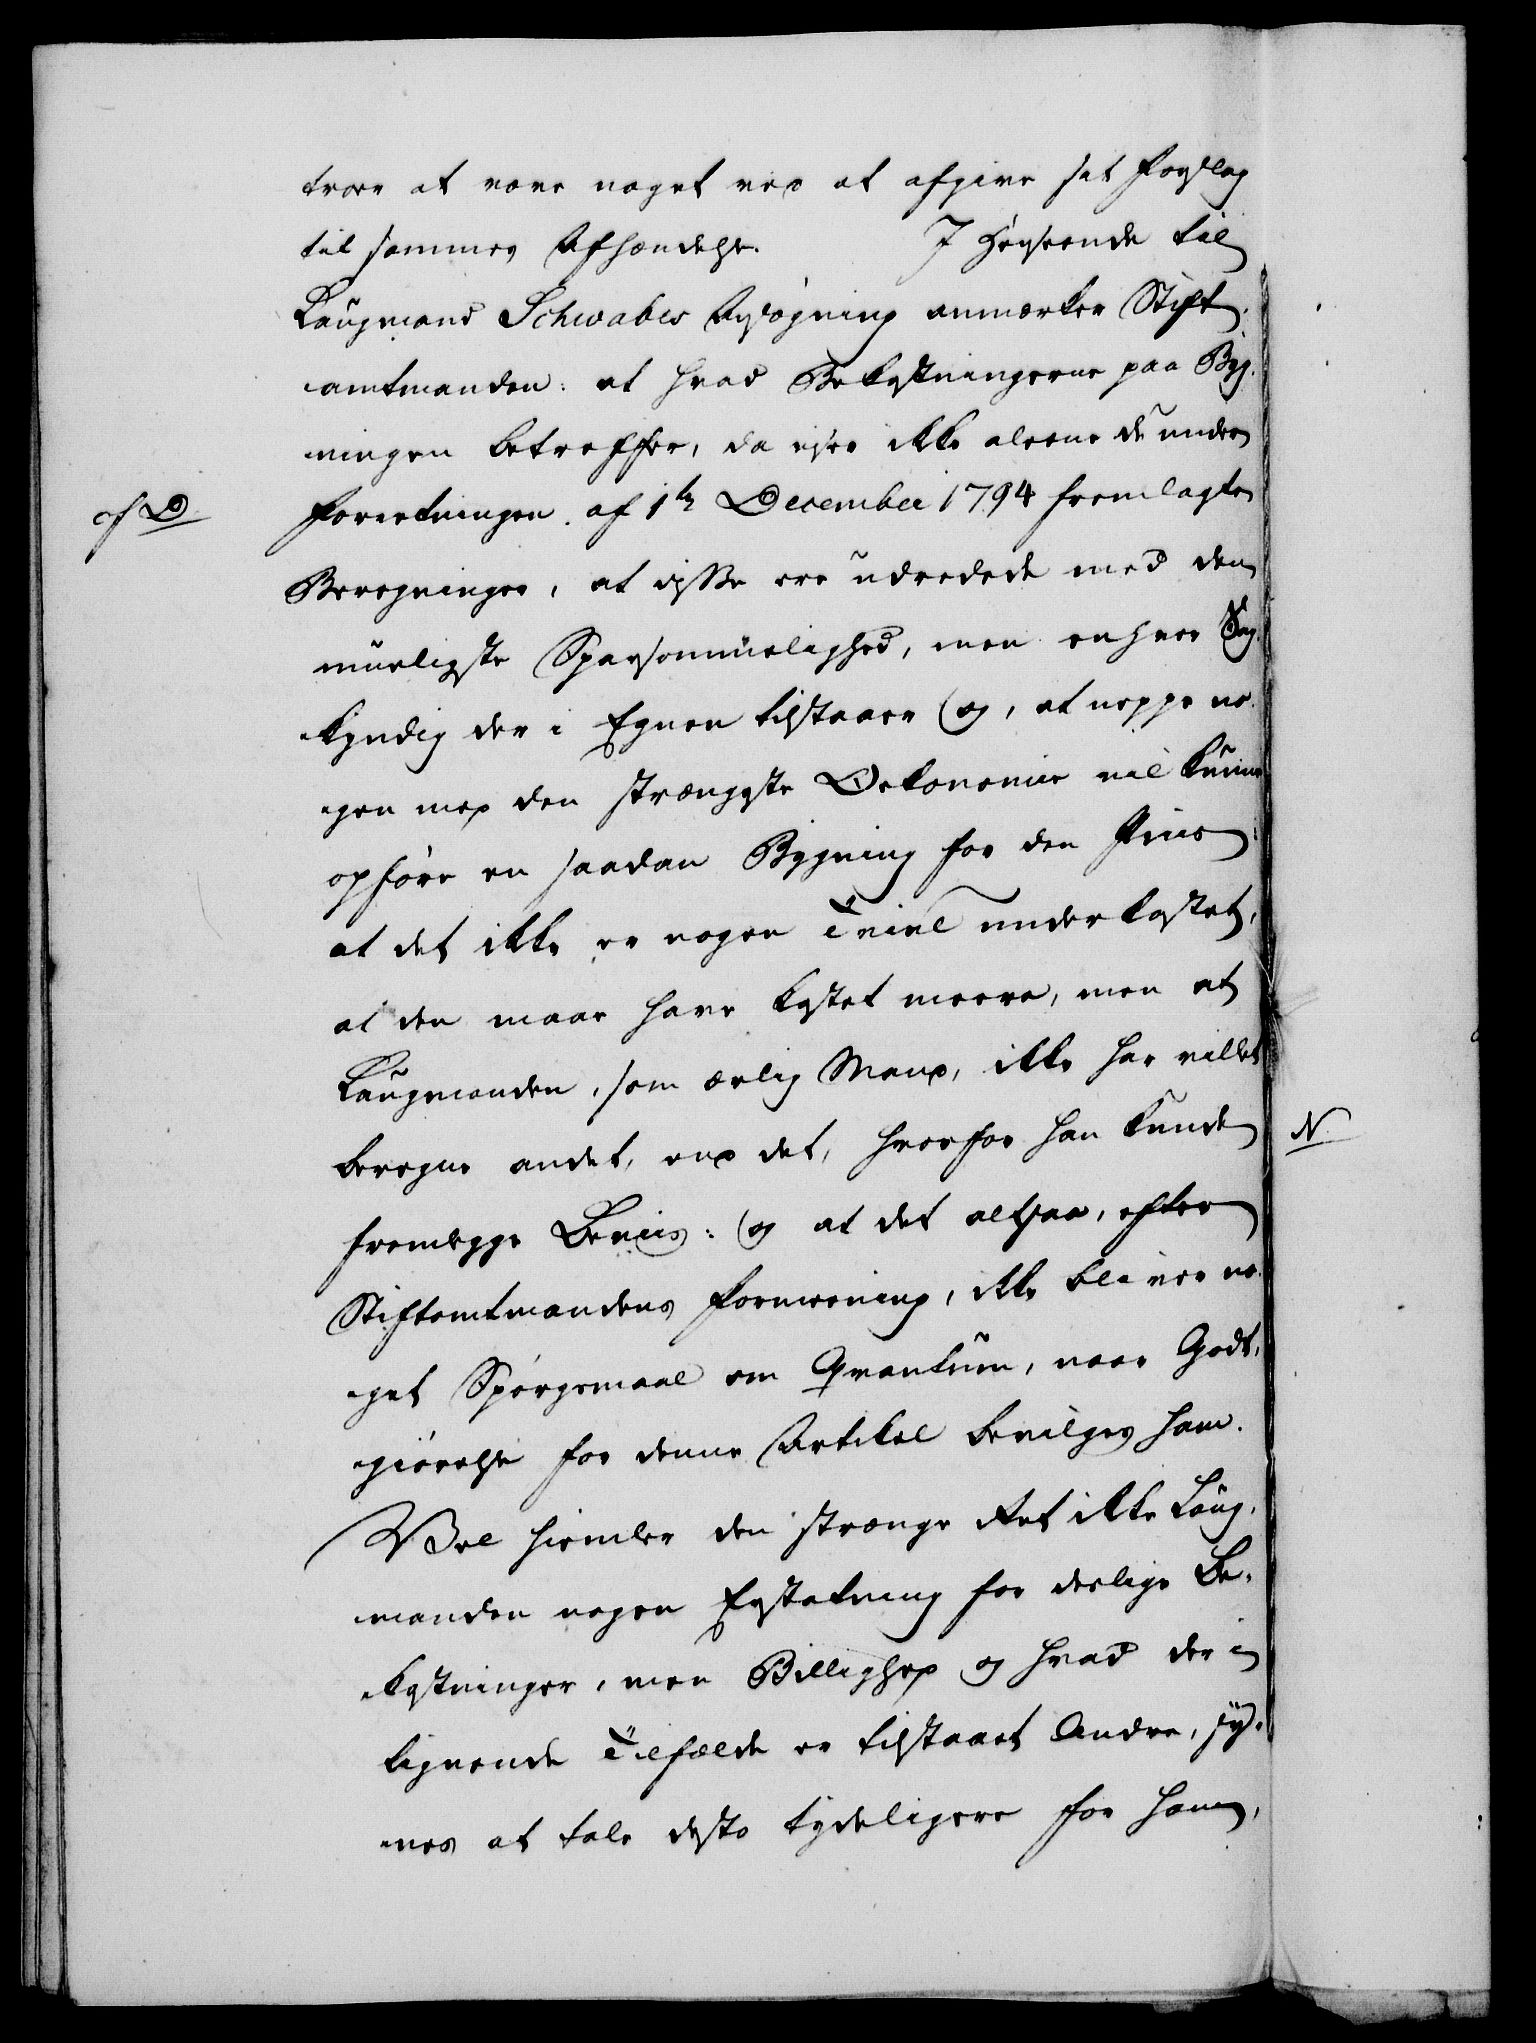 troer at være noget ved at afgive sit Forslag
til sammes Afhændelse. I Henseende til
Laugmand Schwabes Ansøgning anmærker Stift-
amtmanden: at hvad Bekostningerne paa Byg-
ningen betreffer, da viser ikke aleene de under
cf D
Forretningen af 1te December 1794 fremlagte
Beregninger, at disse ere udredede med den
mueligste Sparsommelighed, men enhver Sag-
kyndig der i Egnen tilstaaer og, at neppe no-
gen med den strængeste Oekonomie vil kunne
opføre en saadan Bygning for den Priis:
at det ikke er nogen Tvivl underkastet,
at den maae have kostet meere, men at
Laugmanden, som ærlig Mand, ikke har villet
beregne andet, end det, hvorfor han kunde
N
fremlegge Beviis: og at det altsaa, efter
Stiftamtmandens Formeening, ikke bliver no-
get Spørgsmaal om Qvantum, naar Godt-
giørelse for denne Artikel bevilges ham.
Vel hiemler den strænge Ret ikke Laug-
manden nogen Erstatning for deslige Be-
kostninger, men Billighed og hvad der i
lignende Tilfælde er tilstaaet Andre, sy-
nes at tale desto tydeligere for ham,